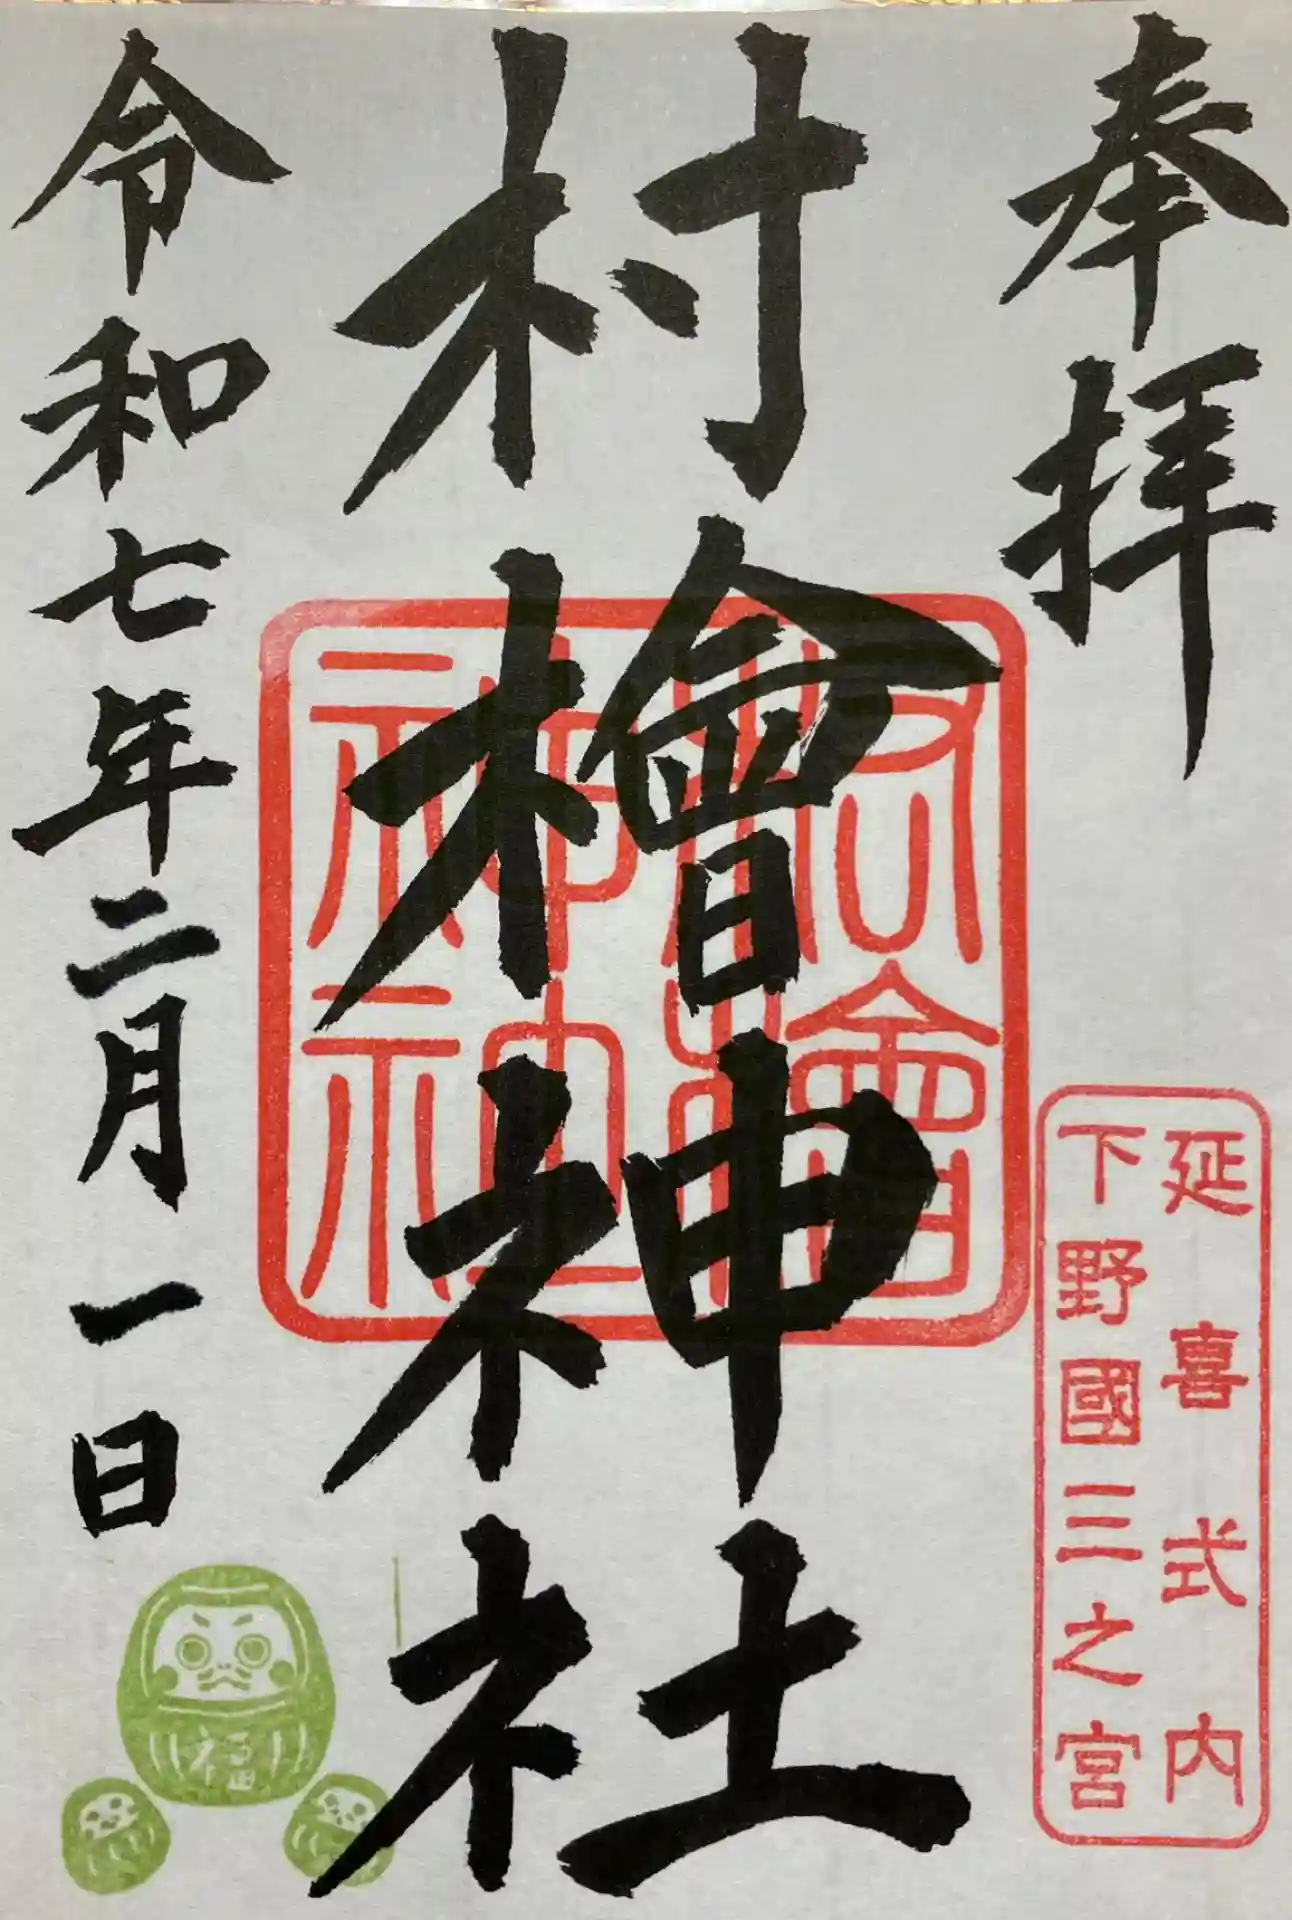 奉拝
延喜式内
下野國三之宮
村檜神社
村檜神社
令和七年二月一日
福